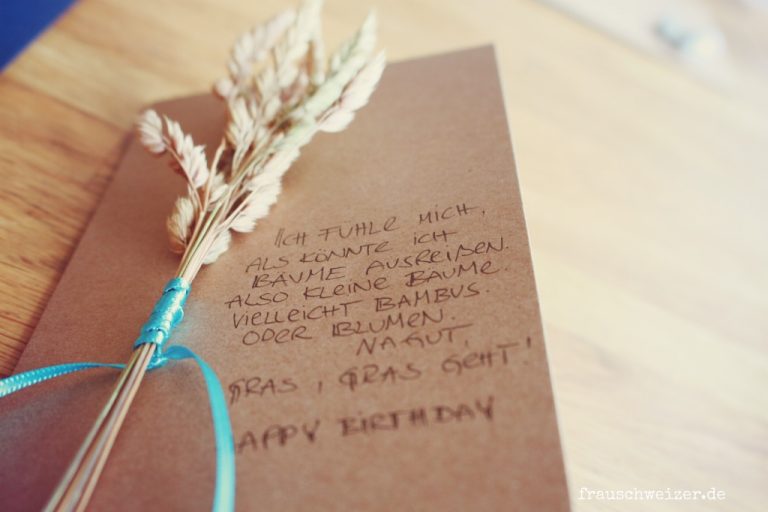 ICH FÜHLE MICH,
ALS KÖNNTE ICH
BÄUME AUSREIßEN.
ALSO KLEINE BÄUME.
VIELLEICHT BAMBUS.
ODER BLUMEN.
NA GUT,
GRAS, GRAS GEHT!
HAPPY BIRTHDAY
frauschweizer.de